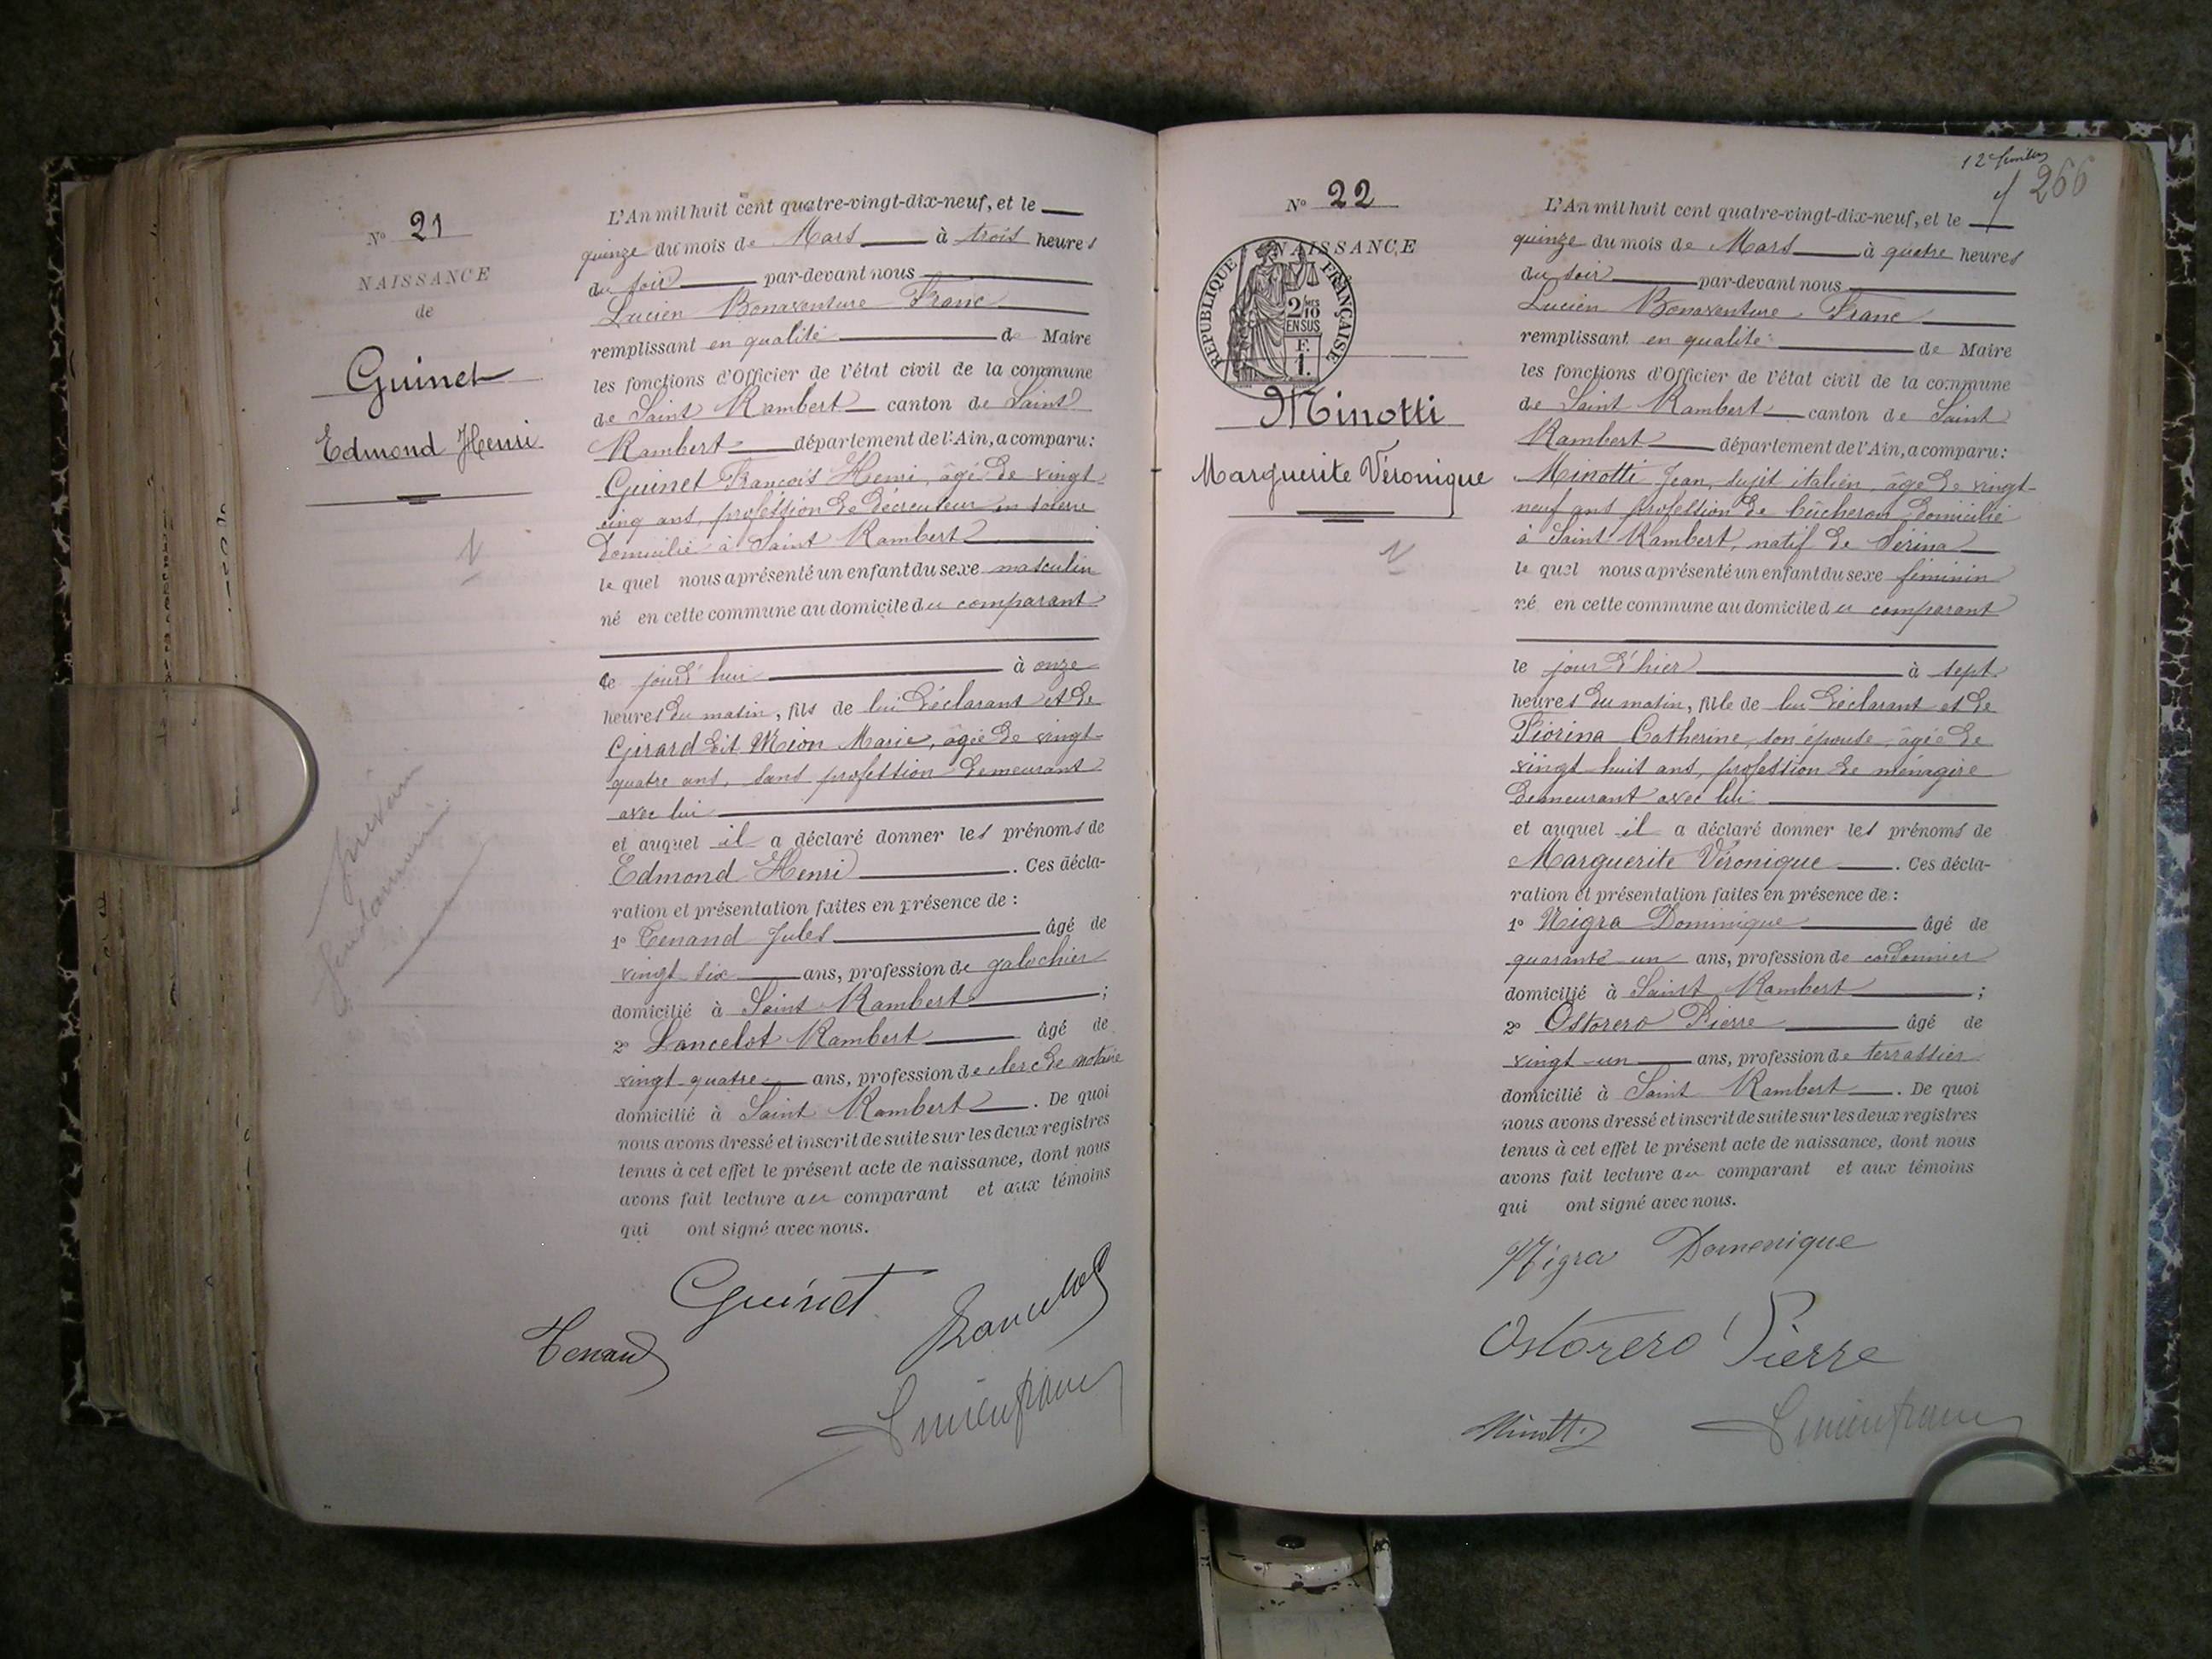 N° 21
NAISSANCE
de
Guinet
Edmond Henri
L'An mil huit cent quatre-vingt-dix-neuf, et le
quinze du mois de Mars à trois heures
du soir par-devant nous
Lucien Bonaventure Franc
remplissant en qualité de Maire
les fonctions d'Officier de l'état civil de la commune
de Saint Rambert canton de Saint
Rambert département de l'Ain, a comparu:
Guinet François Henri, âgé de vingt-
cinq ans, profession de décreuseur en soierie
domicilié à Saint Rambert
le quel nous a présenté un enfant du sexe masculin
né en cette commune au domicile du comparant
le jour d'hui à onze
heures du matin, fils de lui déclarant et de
Girard dit Mion Marie, agée de vingt-
quatre ans, sans profession demeurant
avec lui
et auquel il a déclaré donner les prénoms de
Edmond Henri. Ces décla-
ration et présentation faites en présence de :
1° Tenand Jules âgé de
vingt six ans, profession de galochier
domicilié à Saint Rambert ;
2° Lancelot Rambert âgé de
vingt-quatre ans, profession de clerc de notaire
domicilié à Saint Rambert. De quoi
nous avons dressé et inscrit de suite sur les deux registres
tenus à cet effet le présent acte de naissance, dont nous
avons fait lecture au comparant et aux témoins
qui ont signé avec nous.
Guinet
Lancelot
Tenand
Lucien franc
12e
266
N° 22
NAISSANCE
REPUBLIQUE FRANÇAISE
2/10mes
EN SUS
F.
1.
Minotti
Marguerite Véronique
L'An mil huit cent quatre-vingt-dix-neuf, et le
quinze du mois de Mars à quatre heures
du soir par-devant nous
Lucien Bonaventure Franc
remplissant en qualité de Maire
les fonctions d'Officier de l'état civil de la commune
de Saint Rambert canton de Saint
Rambert département de l'Ain, a comparu:
Minotti Jean, sujet italien, âgé de vingt-
neuf ans profession de bûcheron domicilié
à Saint Rambert, natif de
le quel nous a présenté un enfant du sexe féminin
né en cette commune au domicile du comparant
le jour d'hier à sept
heures du matin, fille de lui déclarant et de
Fiorina Catherine, son épouse, âgée de
vingt-huit ans, profession de ménagère
demeurant avec lui
et auquel il a déclaré donner les prénoms de
Marguerite Véronique. Ces décla-
ration et présentation faites en présence de :
1° Nigra Dominique âgé de
quarante-un ans, profession de cordonnier
domicilié à Saint Rambert ;
2° Ostorero Pierre âgé de
vingt-un ans, profession de terrassier
domicilié à Saint Rambert. De quoi
nous avons dressé et inscrit de suite sur les deux registres
tenus à cet effet le présent acte de naissance, dont nous
avons fait lecture au comparant et aux témoins
qui ont signé avec nous.
Nigra Domenique
Ostorero Pierre
Minotti
Lucien franc